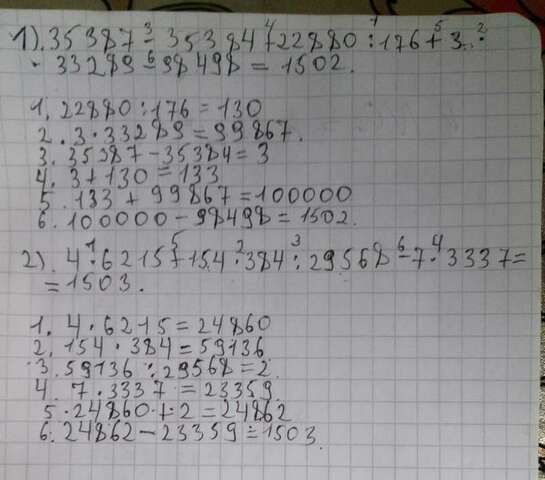 1). 35387 - 35384 + 22880 : 176 + 3 ·
· 33289 - 98498 = 1502.
1. 22880 : 176 = 130
2. 3 · 33289 = 99867.
3. 35387 - 35384 = 3
4. 3 + 130 = 133
5. 133 + 99867 = 100000
6. 100000 - 98498 = 1502.
2) 4 · 6215 + 154 · 384 : 29568 - 7 · 3337 =
= 1503.
1. 4 · 6215 = 24860
2. 154 · 384 = 59136
3. 59136 : 29568 = 2.
4. 7 · 3337 = 23359.
5. 24860 + 2 = 24862
6. 24862 - 23359 = 1503.